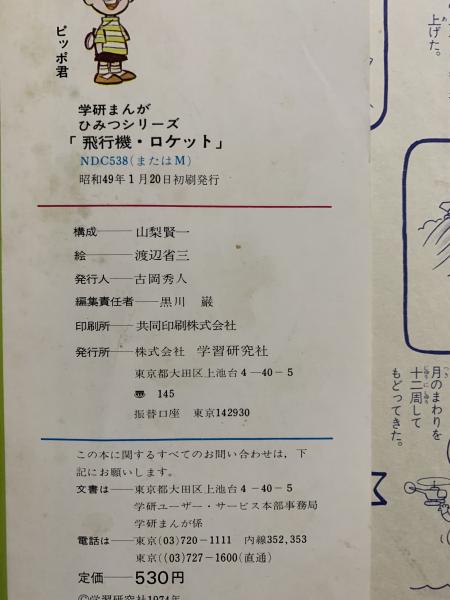 ピッポ君
学研まんが
ひみつシリーズ
「飛行機・ロケット」
NDC538(またはM)
昭和49年1月20日初刷発行
構成――山梨賢一
絵――渡辺省三
発行人――古岡秀人
編集責任者――黒川 巌
印刷所――共同印刷株式会社
発行所――株式会社 学習研究社
東京都大田区上池台4-40-5
〠 145
振替口座 東京142930
この本に関するすべてのお問い合わせは，下
記にお願いします。
文書は――東京都大田区上池台4-40-5
学研ユーザー・サービス本部事務局
学研まんが係
電話は――東京(03)720-1111 内線352,353
東京((03)727-1600(直通)
定価――530円
©学習研究社1974年
上げた。
月のまわりを
十二周して
もどってきた。